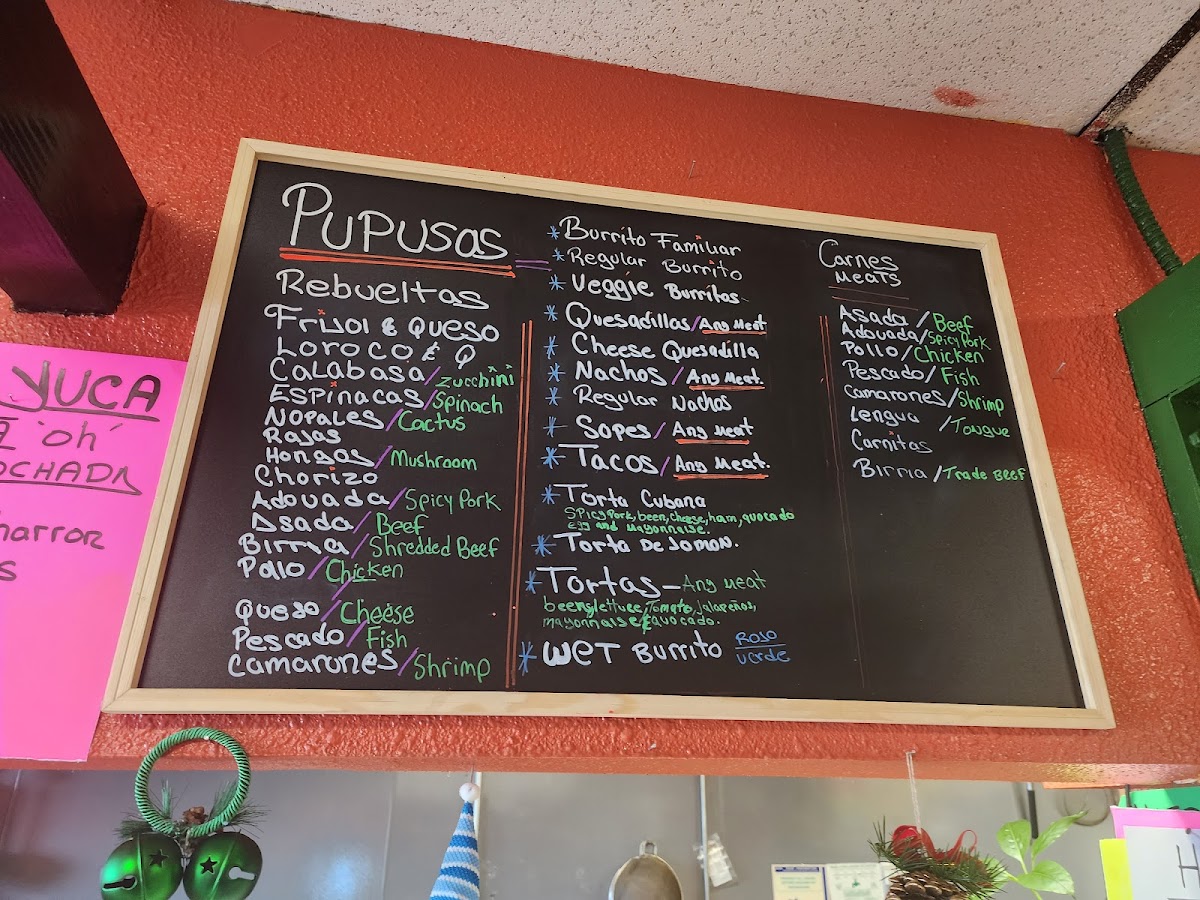 PUPUSAS
Rebueltas
Frijol & Queso
Loroco & Q
Calabasa/Zucchini
Espinacas/Spinach
Nopales/Cactus
Rajas
Hongas/Mushroom
Chorizo
Adovada/Spicy Pork
Asada/Beef
Birria/Shredded Beef
Pollo/Chicken
Queso/Cheese
Pescado/Fish
Camarones/Shrimp
*Burrito Familiar
*Regular Burrito
*Veggie Burritas
*Quesadillas/Any Meat
*Cheese Quesadilla
*Nachos/Any Meat.
*Regular Nachos
*Sopes/Any Meat
*Tacos/Any Meat.
*Torta Cubana
Spicy Pork, been, cheese, ham, quocado
egg and mayonnaise.
*Torta De Jomon.
*Tortas-Any Meat
been, lettuce, Tomato, jalapeños,
mayonnaise & quocado.
*WeT Burrito Rojo
verde
Carnes
Meats
Asada/Beef
Adovada/Spicy Pork
Pollo/Chicken
Pescado/Fish
Camarones/Shrimp
Lengua/Tongue
Carnitas
Birria/Trade Beef
YUCA
'oh'
OCHADA
harror
s
H